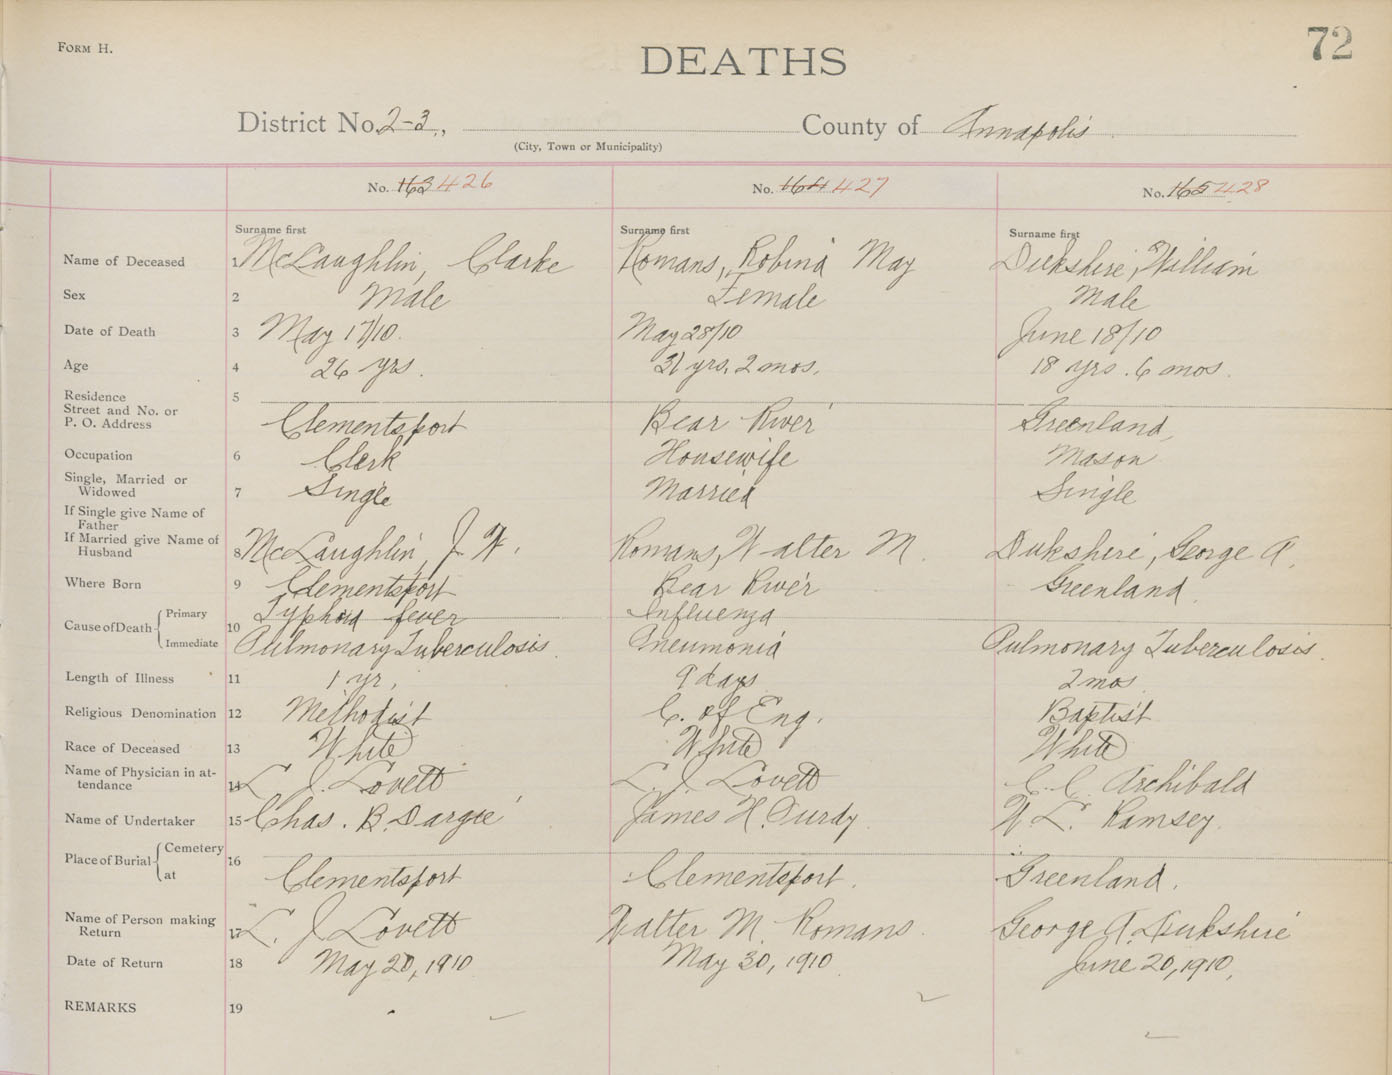 FORM H.
72
DEATHS
District No. 2-3, County of Annapolis
(City, Town or Municipality)
No. 163 426 No. 164 427 No. 165 428
Surname first Surname first Surname first
Name of Deceased 1 McLaughlin, Clarke Romans, Robina May Dukshire, William
Sex 2 Male Female Male
Date of Death 3 May 17/10. May 28/10 June 18/10
Age 4 26 yrs. 31 yrs, 2 mos. 18 yrs. 6 mos.
Residence 5
Street and No. or
P. O. Address Clementsport Bear River Greenland
Occupation 6 Clerk Housewife Mason
Single, Married or
Widowed 7 Single Married Single
If Single give Name of
Father
If Married give Name of
Husband 8 McLaughlin, J. W. Romans, Walter M. Dukshire, George A.
Where Born 9 Clementsport Bear River Greenland
Cause of Death Primary 10 Typhoid fever Influenza
Immediate Pulmonary Tuberculosis. Pneumonia Pulmonary Tuberculosis.
Length of Illness 11 1 yr. 9 days 2 mos
Religious Denomination 12 Methodist C. of Eng. Baptist
Race of Deceased 13 White White White
Name of Physician in at-
tendance 14 L. J. Lovett L. J. Lovett C. C. Archibald
Name of Undertaker 15 Chas. B. Dargie James H. Purdy W. L. Ramsey
Place of Burial Cemetery 16
at Clementsport Clementsport. Greenland.
Name of Person making
Return 17 L. J. Lovett Walter M. Romans George A. Dukshire
Date of Return 18 May 20, 1910 May 30, 1910 June 20, 1910,
REMARKS 19